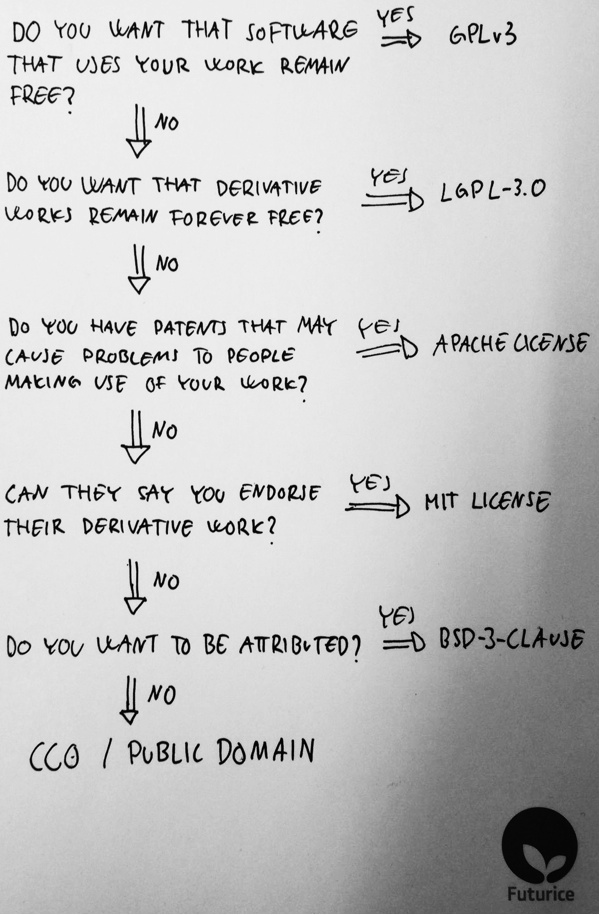 DO YOU WANT THAT SOFTWARE
THAT USES YOUR WORK REMAIN
FREE?
YES
GPLv3
NO
DO YOU WANT THAT DERIVATIVE
WORKS REMAIN FOREVER FREE?
YES
LGPL-3.0
NO
DO YOU HAVE PATENTS THAT MAY
CAUSE PROBLEMS TO PEOPLE
MAKING USE OF YOUR WORK?
YES
APACHE LICENSE
NO
CAN THEY SAY YOU ENDORSE
THEIR DERIVATIVE WORK?
YES
MIT LICENSE
NO
DO YOU WANT TO BE ATTRIBUTED?
YES
BSD-3-CLAUSE
NO
CC0 / PUBLIC DOMAIN
Futurice